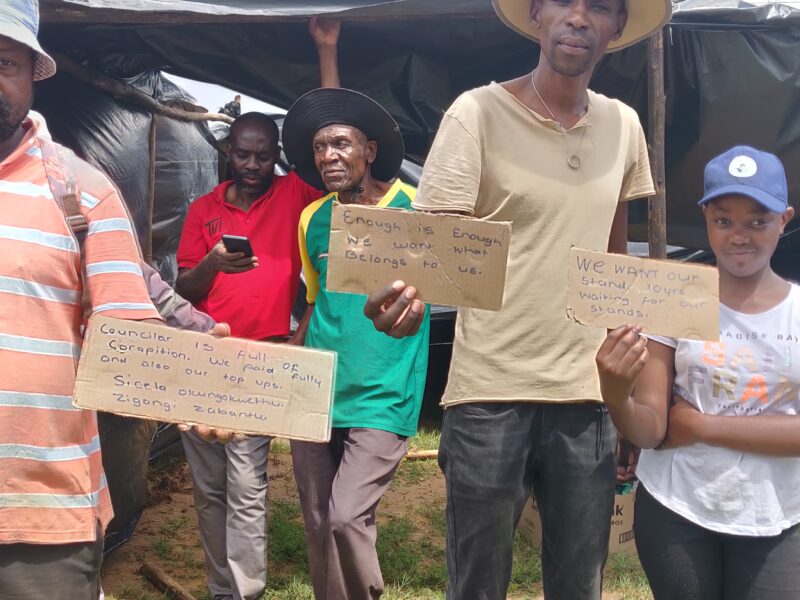 Council is Full of
Corapition. We paid fully
and also our top ups.
Sicela okungokwethu.
Zigangi zabantu
Enough is Enough
We want what
Belongs to us.
WE WANT OUR
Stand 10yrs
Waiting for our
stands.
TMT